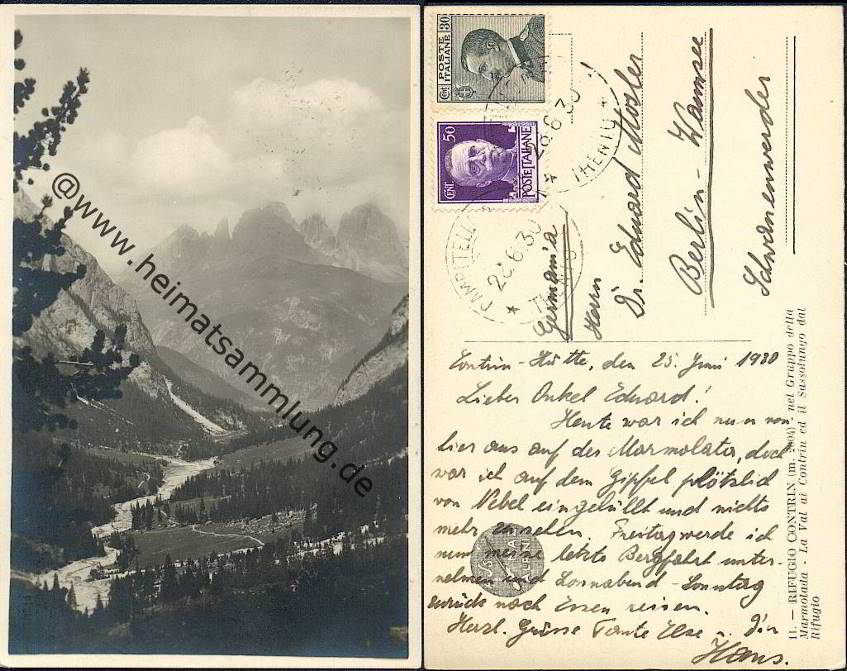 @www.heimatsammlung.de
POSTE ITALIANE
Cent 30
50
CENT.
POSTE ITALIANE
28.6.30
TRENTO
28.6.30
TRENTO
Germania
Herrn
Dr. Eduard Mosler
Berlin - Wannsee
Schwanenwerder
Contrin-Hütte, den 25. Juni 1930
Lieber Onkel Eduard!
Heute war ich nun von
hier aus auf der Marmolata, doch
war ich auf dem Gipfel plötzlich
von Nebel eingehüllt und nichts
mehr zu sehen. Freitag werde ich
nun meine letzte Bergfahrt unter-
nehmen und Sonnabend - Sonntag
zurück nach Essen reisen.
Herzl. Grüsse Tante Else u. Dir
Hans.
11. - RIFUGIO CONTRIN (m. 2004) - nel Gruppo della
Marmolada - La Val di Contrin ed il Sassolungo dal
Rifugio